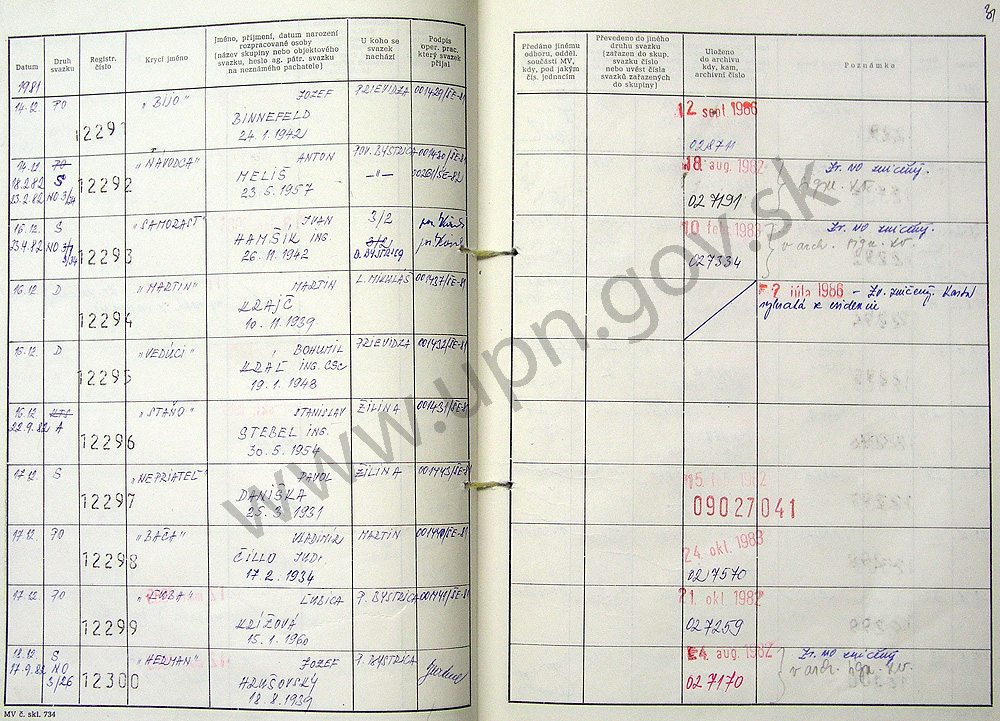 31
Datum
Druh svazku
Registr. číslo
Krycí jméno
Jméno, příjmení, datum narození rozpracované osoby (název skupiny nebo objektového svazku, heslo ag. pátr. svazku na neznámého pachatele)
U koho se svazek nachází
Podpis oper. prac. který svazek přijal
Předáno jinému odboru, odděl. součásti MV, kdy, pod jakým čís. jednacím
Převedeno do jiného druhu svazku (zařazen do skup. svazku číslo nebo uvést čísla svazků zařazených do skupiny)
Uloženo do archivu kdy, kam, archivní číslo
Poznámka
1981
14.12. PO 12291 „BIJO" JOZEF PRIEVIDZA 001429/ŠE-81 12 sept 1986
BINNEFELD
24.1.1942 028711
14.12. PO 12292 „NÁVODCA" ANTON POV. BYSTRICA 001430/ŠE-81 18. aug. 1982 Zv. NO zničený.
18.2.82 S MELIŠ —„— 00261/ŠE-82
23.2.82 NO 3/34 23.5.1957 027191
16.12. S 12293 „SAMORAST" IVAN 3/2 10 feb. 1983 Zv. NO zničený.
23.4.82 NO HAMŠÍK ING. 3/2 v arch.
26.11.1942 B. BYSTRICA 027334
16.12. D 12294 „MARTIN" MARTIN L. MIKULÁŠ 001437/ŠE-81 7 júla 1986 – Zv. zničený. Karta
KRAJČ vybratá z evidencie
10.11.1939
15.12. D 12295 „VEDÚCI" BOHUMIL PRIEVIDZA 001432/ŠE-81
KRÁĽ ING. CSc
19.1.1948
16.12. KTS 12296 „STAŇO" STANISLAV ŽILINA 001431/ŠE-81
22.9.82 A STEBEL ING.
30.5.1954
17.12. S 12297 „NEPRIATEĽ" PAVOL ŽILINA 001443/ŠE-81 1982
DANIŠKA 09027041
25.3.1931
17.12. PO 12298 „BAČA" VLADIMÍR MARTIN 001440/ŠE-81 24. okt. 1983
ČILLO JUDr.
17.2.1934 027570
17.12. PO 12299 ĽUBICA P. BYSTRICA 001441/ŠE-81 21. okt. 1982
KRÍŽOVÁ
15.1.1960 027259
18.12. S 12300 „HERMAN" JOZEF P. BYSTRICA 24. aug. 1982 Zv. NO zničený
17.9.82 NO HRUŠOVSKÝ v arch.
3/26 18.8.1939 027170
MV č. skl. 734
www.upn.gov.sk